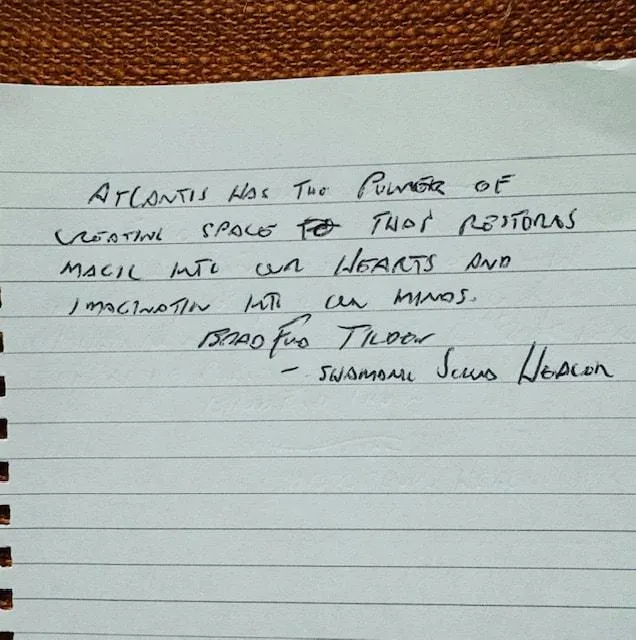 ATLANTIS HAS THE POWER OF
CREATING SPACE TO THAT RESTORES
MAGIC INTO OUR HEARTS AND
IMAGINATION INTO OUR MINDS.
BRADFORD TILDEN
- SHAMANIC SOUND HEALER